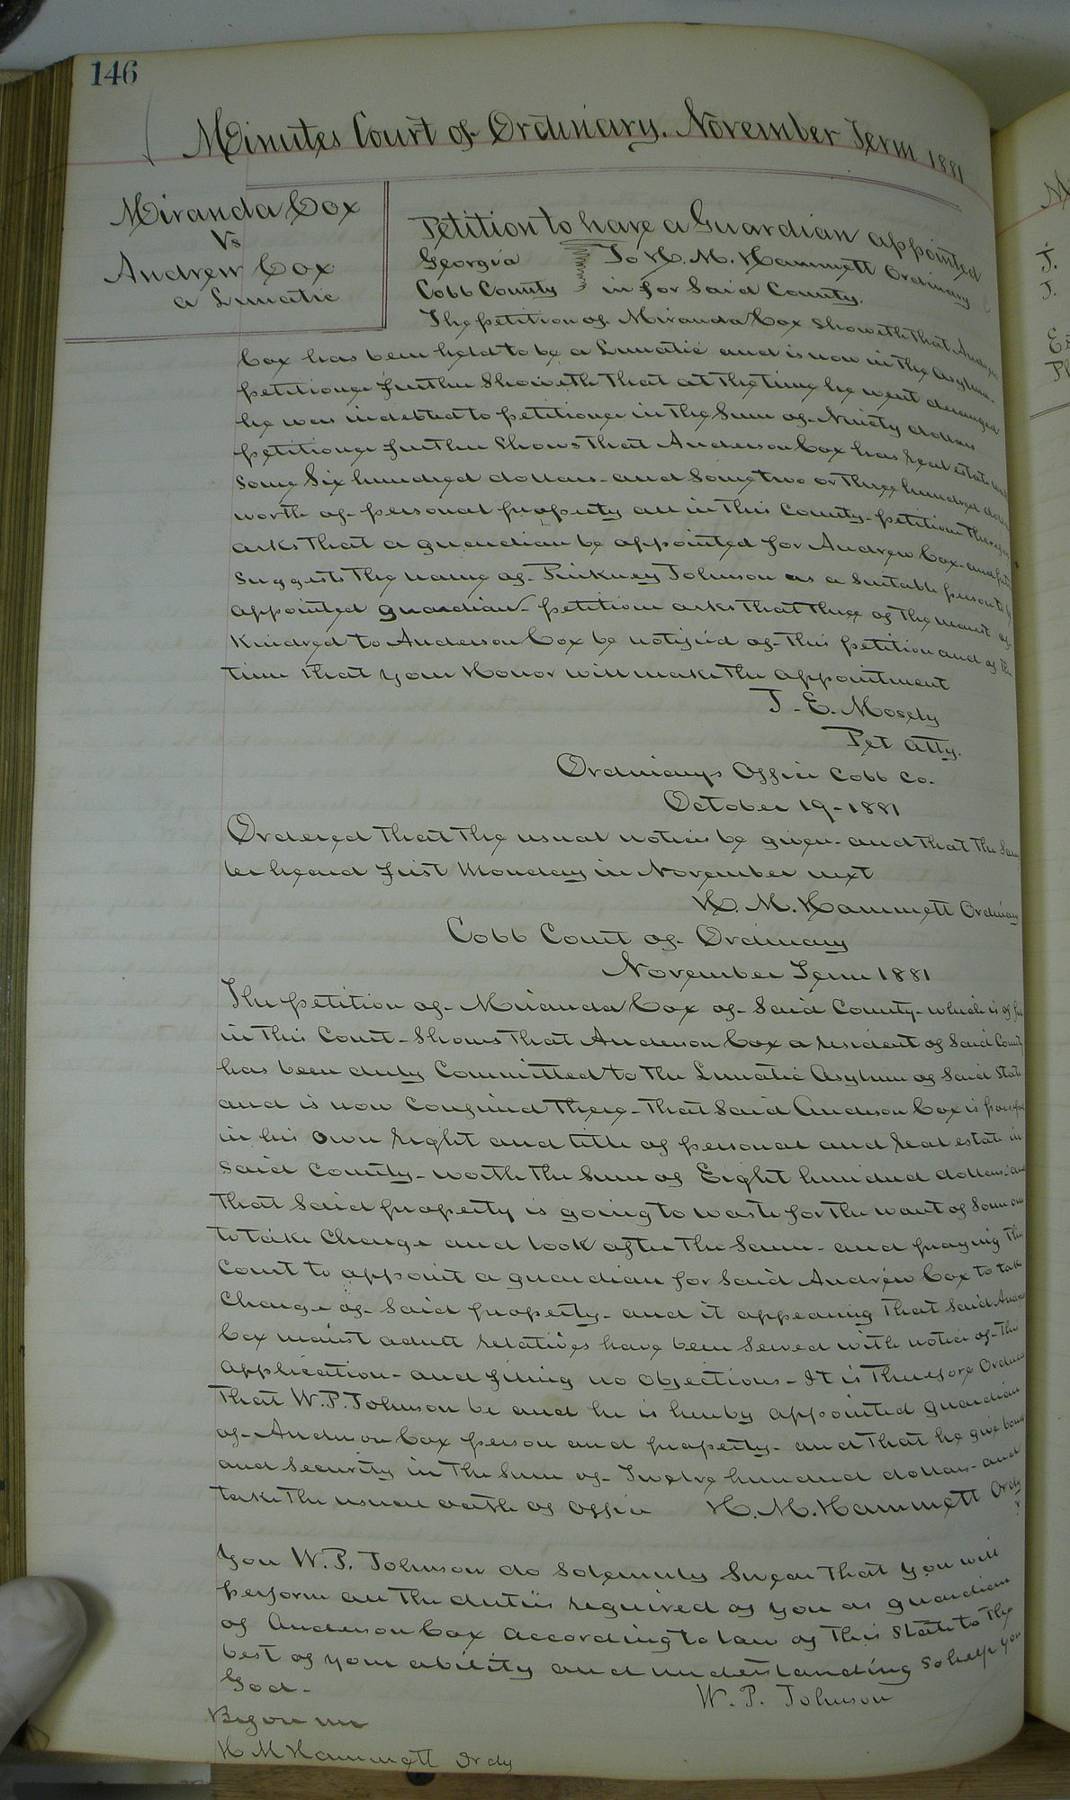 146
Minutes Court of Ordinary. November Term 1881
Miranda Cox
Vs
Andrew Cox
a Lunatic
Petition to have a Guardian appointed
Georgia To H. M. Hammett Ordinary
Cobb County in for Said County.
The petition of Miranda Cox Showeth that
Cox has been held to be a Lunatic and is now in the Asylum.
petitioner further Showeth that at the time he went deranged
he was indebted to petitioner in the Sum of Ninety dollars
petitioner further Shows that Anderson Cox has real estate
Some Six hundred dollars and Some two or three hundred
worth of personal property all in this County petitioner
asks that a guardian be appointed for Andrew Cox and
Suggests the name of Pinkney Johnson as a Suitable person to
appointed guardian petitioner asks that three of the nearest of
Kindred to Anderson Cox be notified of this petition and of the
time that your Honor will make the appointment
T. E. Mosely
Pet Atty.
Ordinarys Office Cobb Co.
October 19 - 1881
Ordered that the usual notice be given and that the Same
be heard first Monday in November next
H. M. Hammett Ordinary
Cobb Court of Ordinary
November Term 1881
The petition of Miranda Cox of Said County which is of
in this Court Shows that Anderson Cox a resident of Said County
has been duly Committed to the Lunatic Asylum of Said State
and is now Confined there - that Said Anderson Cox is
in his own right and title of personal and real estate in
Said County - worth the Sum of Eight hundred dollars and
that Said property is going to waste for the want of Some one
to take Charge and look after the Same - and praying this
Court to appoint a guardian for Said Andrew Cox to take
Charge of Said property - and it appearing that Said
Cox nearst adult relatives have been Served with notice of this
application - and filing no objections - It is therefore Ordered
that W. P. Johnson be and he is hereby appointed guardian
of Anderson Cox person and property - and that he give bond
and Security in the Sum of Twelve hundred dollars - and
take the usual oath of office H. M. Hammett Ordy
You W. P. Johnson do Solemnly Swear that you will
perform all the duties required of you as guardian
of Anderson Cox according to law of this State to the
best of your ability and understanding So help you
God -
W. P. Johnson
Before me
H M Hammett Ordy